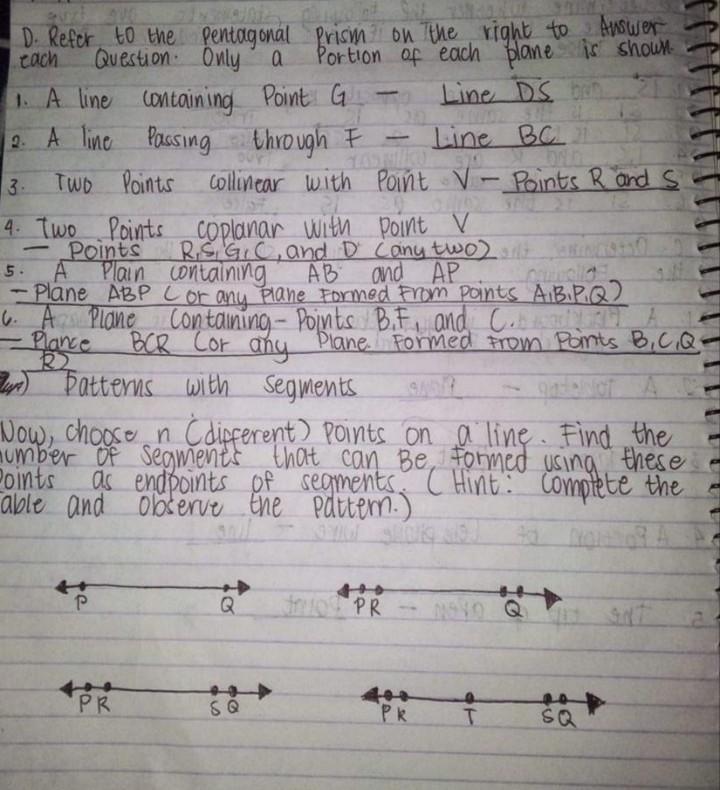 D. Refer to the Pentagonal Prism on the right to Answer
each Question. Only a Portion of each plane is shown
1. A line containing Point G - Line DS
2. A line Passing through F - Line BC
3. Two Points collinear with Point V - Points R and S
4. Two Points coplanar with point V
- Points R, S, G, C, and D (any two)
5. A Plain containing AB and AP
- Plane ABP (or any Plane Formed From Points A,B,P,Q)
6. A Plane Containing - Points B, F, and C.
- Plance BCR (or any Plane Formed From Points B, C, Q
R)
Patterns with Segments
Now, choose n (different) Points on a line. Find the
number of segments that can Be formed using these
Points as endpoints of segments. (Hint: Complete the
table and observe the pattern.)
P Q
P R Q
P R S Q
P R T S Q